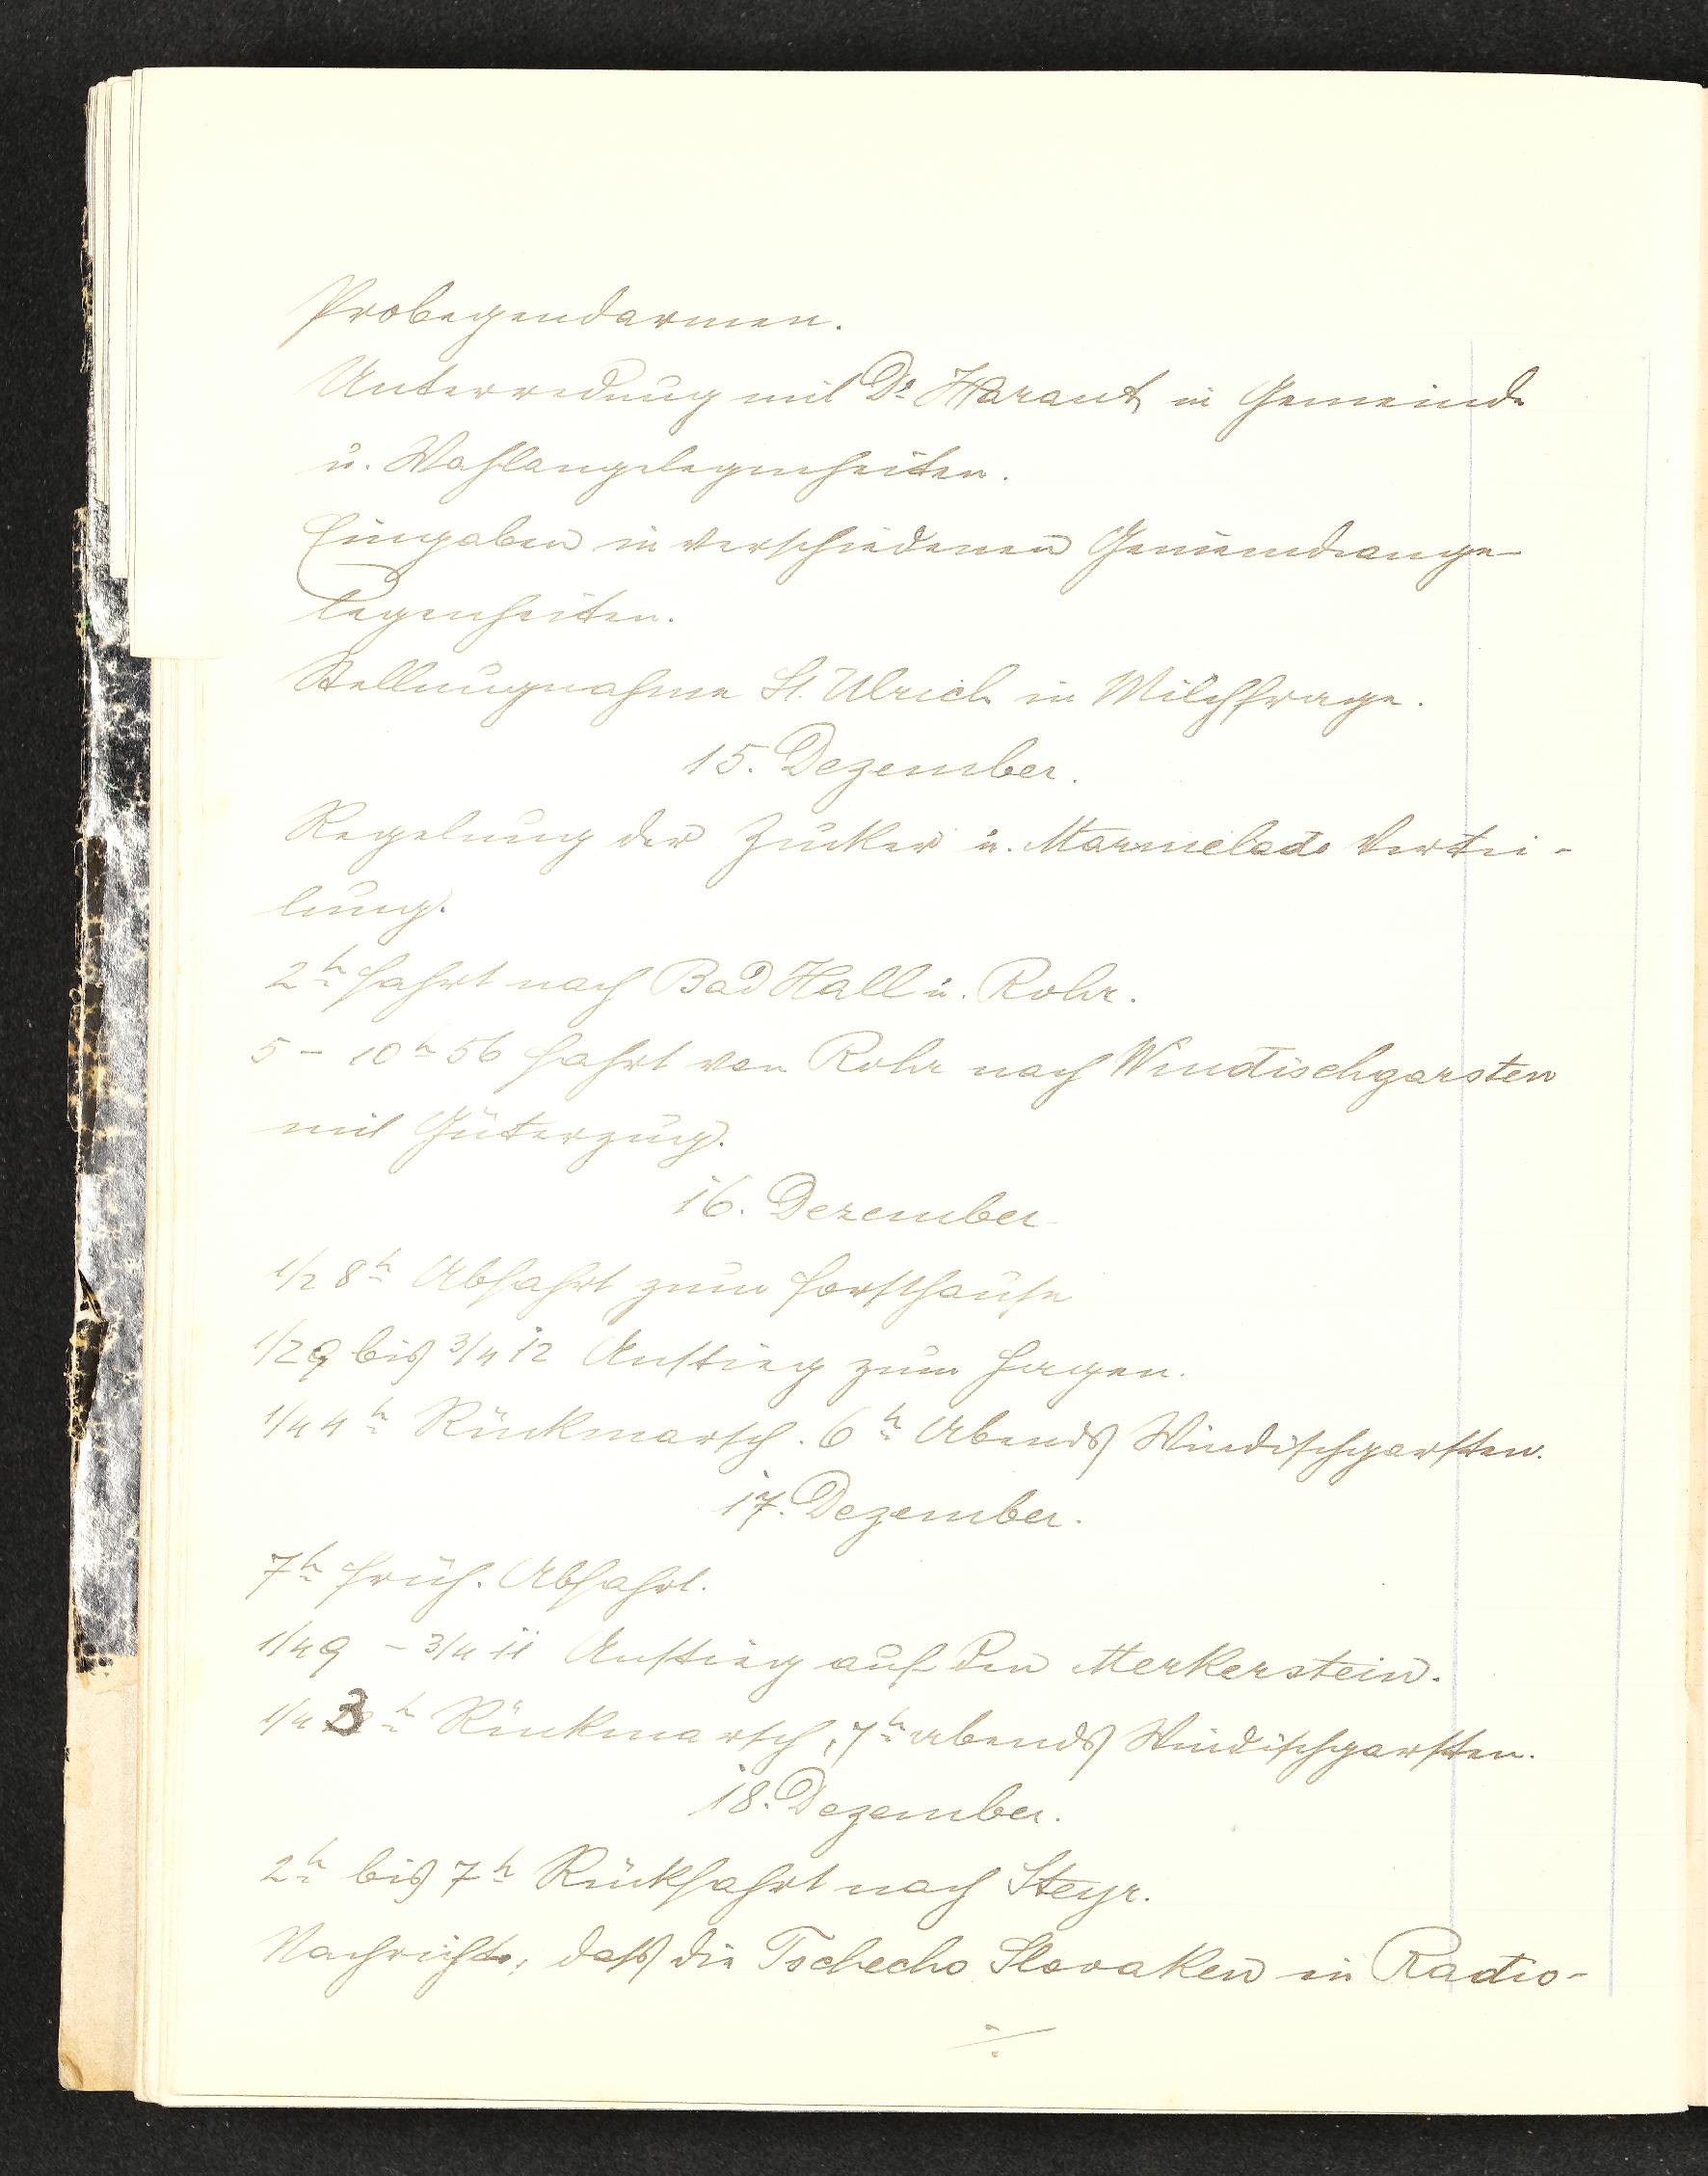 Probegendarmen.
Unterredung mit Dr Harant in Gemeinde
u. Wahlangelegenheiten.
Eingaben in verschiedenen Gemeindeange-
legenheiten.
Stellungnahme St. Ulrich in Milchfrage.
15. Dezember.
Regelung der Zucker u. Marmelade Vertei-
lung.
2h Fahrt nach Bad Hall u. Rohr.
5 - 10h 56 Fahrt von Rohr nach Windischgarsten
mit Güterzug.
16. Dezember
1/2 8h Abfahrt zum Forsthause
1/2 9 bis 3/4 12 Anstieg zum
1/4 4h Rückmarsch. 6h Abends Windischgarsten.
17. Dezember.
7h früh. Abfahrt.
1/4 9 - 3/4 11 Anstieg auf den Merkerstein.
1/4 3h Rückmarsch, 7h abends Windischgarsten.
18. Dezember.
2h bis 7h Rückfahrt nach Steyr.
Nachricht, daß die Tschecho Slovaken in Radio-
./.